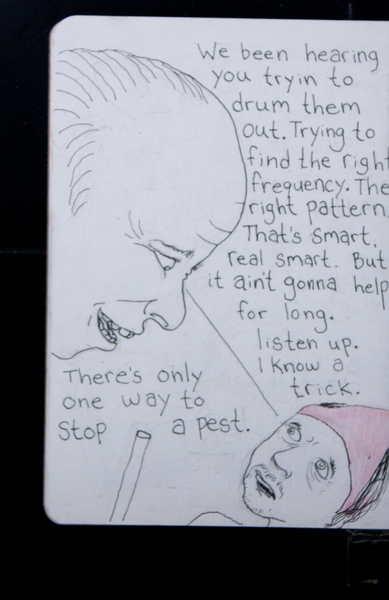 We been hearing
you tryin to
drum them
out. Trying to
find the right
frequency. The
right pattern
That's smart,
real smart. But
it ain't gonna help
for long.
listen up.
I know a
trick.
There's only
one way to
stop a pest.